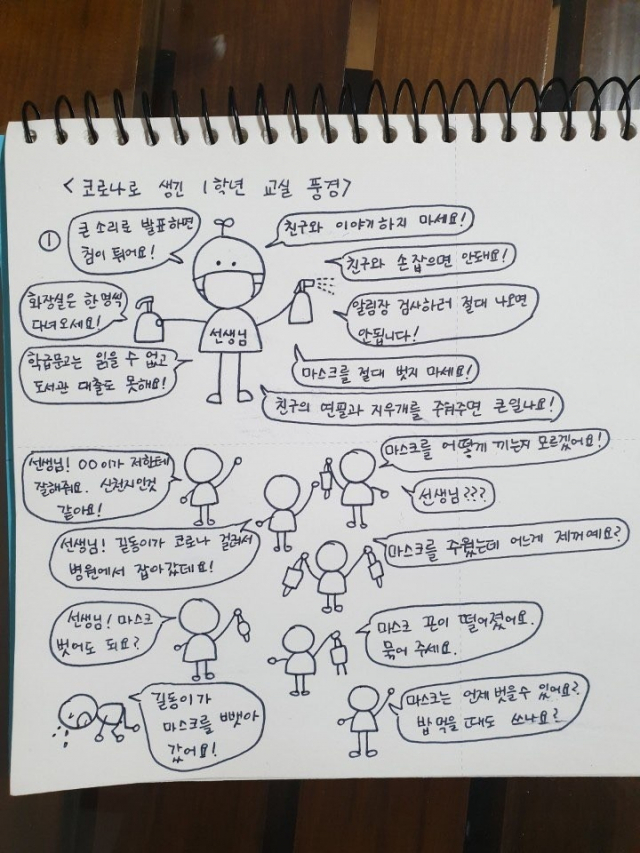 <코로나로 생긴 1학년 교실 풍경>
①
큰 소리로 발표하면
침이 튀어요!
친구와 이야기하지 마세요!
친구와 손잡으면 안돼요!
화장실은 한명씩
다녀오세요!
선생님
알림장 검사하러 절대 나오면
안됩니다!
학급문고는 읽을 수 없고
도서관 대출도 못해요!
마스크를 절대 벗지 마세요!
친구의 연필과 지우개를 주워주면 큰일나요!
마스크를 어떻게 끼는지 모르겠어요!
선생님! OO이가 저한테
잘해줘요. 신천지인것
같아요!
선생님???
선생님! 길동이가 코로나 걸려서
병원에서 잡아갔데요!
마스크를 주웠는데 어느게 제꺼예요?
선생님! 마스크
벗어도 되요?
마스크 끈이 떨어졌어요.
묶어 주세요.
길동이가
마스크를 뺏아
갔어요!
마스크는 언제 벗을수 있어요?
밥 먹을 때도 쓰나요?